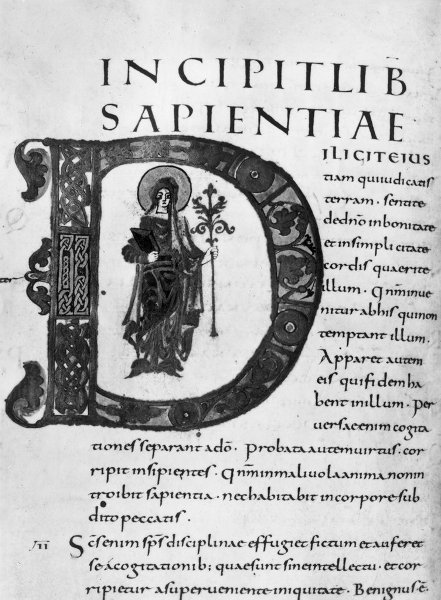 INCIPIT LIB̄
SAPIENTIAE
DILIGITE IUS
titiam qui iudicatis
terram. sentite
de dn̄o in bonitate
et in simplicitate
cordis quaerite
illum. Qm̄ inue
nitur ab his qui non
temptant illum.
Apparet autem
eis qui fidem ha
bent in illum. Per
uersae enim cogita
tiones separant a dō. Probata autem uirtus. cor
ripit insipientes. Qm̄ in maliuola anima non in
troibit sapientia. nec habitabit in corpore sub
dito peccatis.
II Scs̄ enim sps̄ disciplinae effugiet fictum et auferet
se a cogitationib; quae sunt sine intellectu. et cor
ripietur a superueniente iniquitate. Benignus ē.